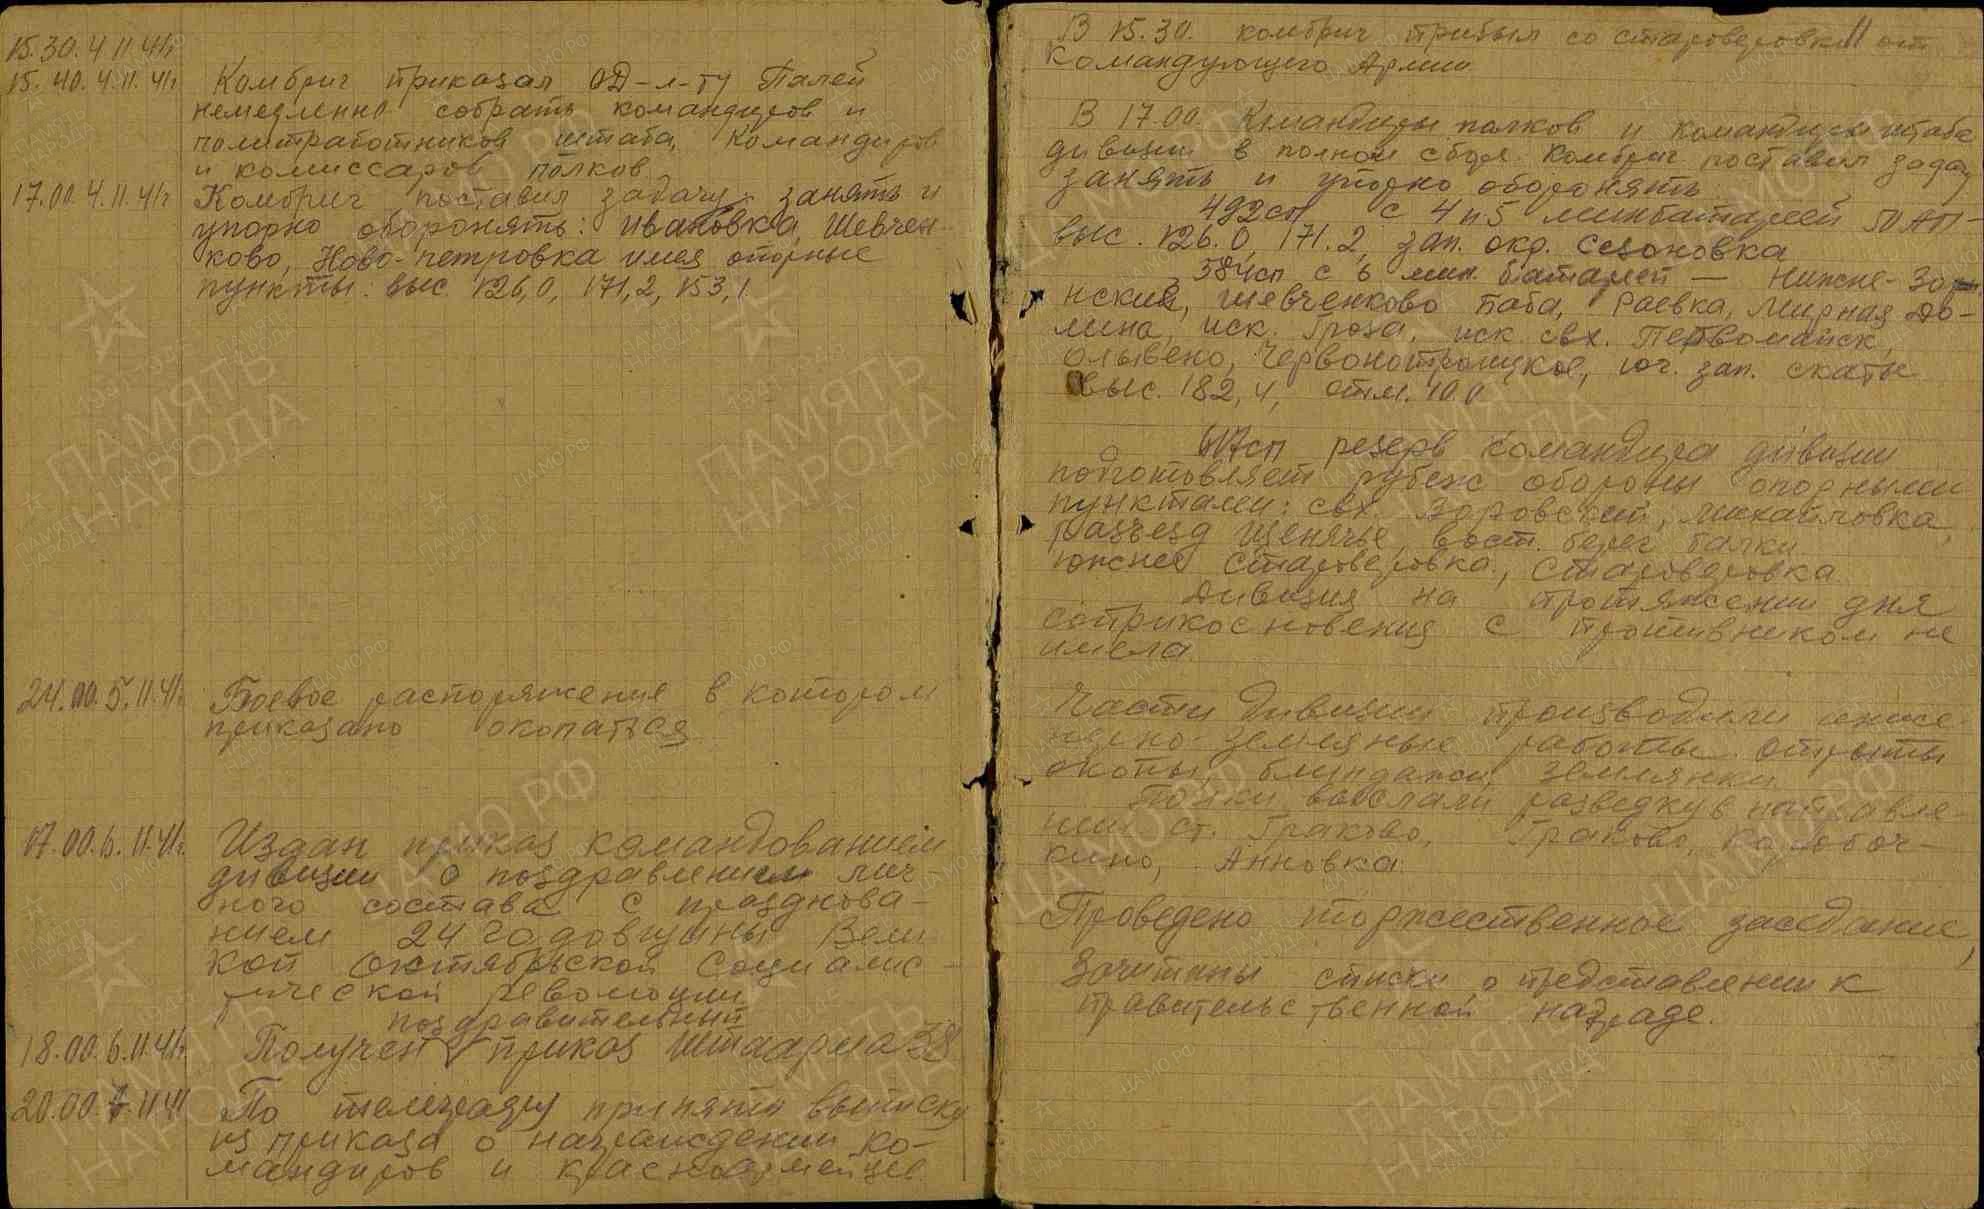 15.30.4.11.41г
15.40.4.11.41г Комбриг приказал ОД-л-ту Палей
немедленно собрать командиров и
политработников штаба, командиров
и комиссаров полков.
17.00.4.11.41г Комбриг поставил задачу занять и
упорно оборонять: Ивановка, Шевчен-
ково, Ново-петровка имея опорные
пункты: выс. 126,0, 171,2, 153,1.
24.00.5.11.41г. Боевое распоряжение в котором
приказано окопаться
17.00.6.11.41г. Издан приказ командованием
дивизии о поздравлении лич-
ного состава с празднова-
нием 24 годовщины Вели
кой Октябрьской Социалис-
тической революции
поздравительный
18.00.6.11.41г. Получен приказ Штаарма 38
20.00.7.11.41 По телеграфу принята выписка
из приказа о награждении ко-
мандиров и красноармейцев
В 15.30. комбриг прибыл со староверовки II от
Командующего Армии.
В 17.00. Командиры полков и командиры штаба
дивизии в полном сборе. Комбриг поставил задачу
занять и упорно оборонять
492сп с 4 и 5 минбатареей 50 АП-
выс. 126.0, 171.2, зап. окр. Сезоновка
584сп с 6 мин. батареей — Нижне-Зор
нский, Шевченково баба, Раевка, Мирная до-
лина, иск. Гроза, иск. свх. Первомайск,
Червонотроицкое, юг. зап. скаты
выс. 182,4, отм. 10.0
617сп резерв командира дивизии
подготовляет рубеж обороны опорными
пунктами: свх. Михайловка,
разъезд Щенячье, вост. берег балки
южнее Староверовка, Староверовка.
Дивизия на протяжении дня
соприкосновения с противником не
имела.
Части дивизии производили инже-
нерно-земляные работы. Отрыты
окопы, блиндажи, землянки.
Полки выслали разведку в направле-
нии ст. Граково, Граково, Коробоч-
кино, Анновка.
Проведено торжественное заседание,
Зачитаны списки о представлении к
правительственной награде.
ПАМЯТЬ
НАРОДА
ЦАМО.РФ